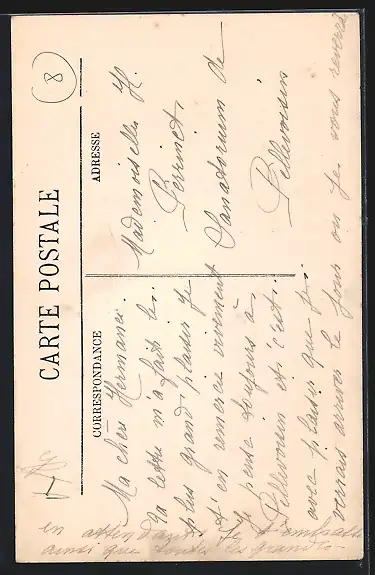 CARTE POSTALE
CORRESPONDANCE
ADRESSE
8
Ma chère Hermance.
Ta lettre m'a faite le
plus grand plaisir je
t'en remercie vivement
Je pense toujours à
Pellevoisin et c'est
avec plaisir que je
verrais arriver le jour ou je vous reverrai
en attendant je t'embrasse
ainsi que toutes les grandes
Mademoiselle H.
Perrinet
Sanatorium de
Pellevoisin